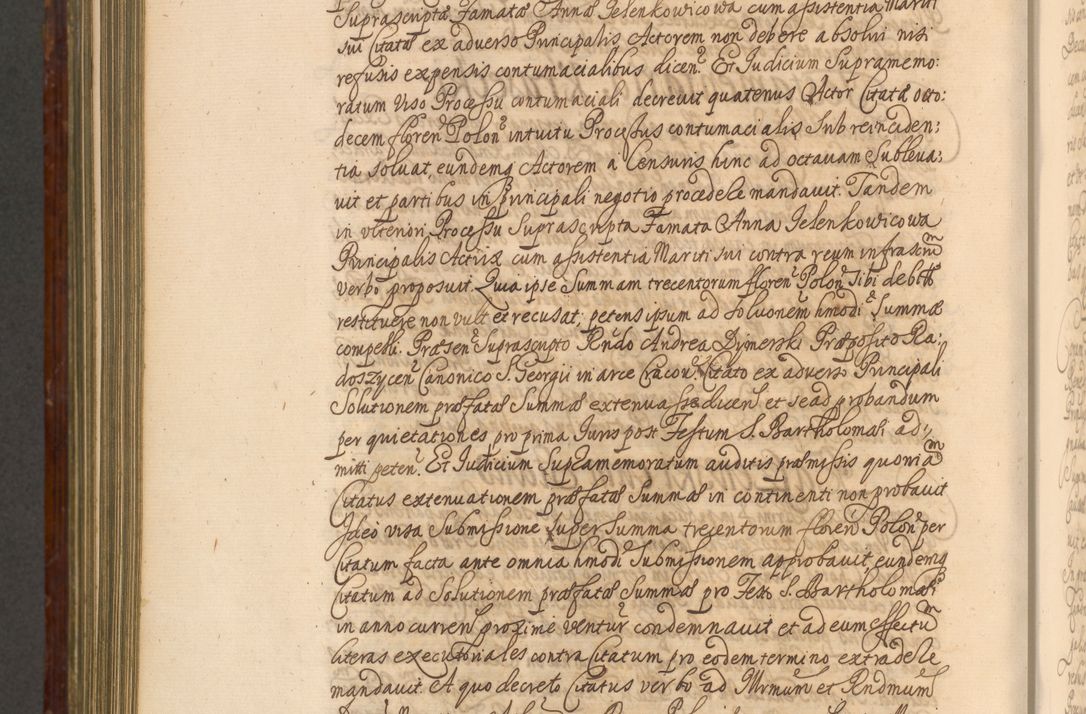 Suprascripta Famata Anna Jelenkowicowa cum assistentia Mariti
sui Citata ex adverso Principalis Actorem non debere absolvi nisi
refusis expensis contumacialibus dicen. Et Judicium Supramemo:
ratum viso Processu contumaciali decrevit quatenus Actor Citatæ octo:
decem floren Polon intuitu Processus contumacialis Sub reinciden:
tia solvat, eundemq Actorem a Censuris hinc ad octavam Subleva:
vit et partibus in Principali negotio procedere mandavit. Tandem
in ulteriori Processu Suprascripta Famata Anna Jelenkowicowa
Principalis Actrix cum assistentia Mariti sui contra reum infrascrm
verbo proposuit. Quia ipse Summam trecentorum floren Polon sibi debittã
restituere non vult et recusat, petens ipsum ad solvonem hmodi Summæ
compelli. Præsen Suprascripto Rndo Andrea Dymerski Præposito Ra:
doszycen Canonico S. Georgii in arce Cracov. Citato ex adverso Principali
Solutionem præfatæ Summæ extenuasse dicens et se ad probandum
per quietationes pro prima Juris post Festum S. Bartholomæi ad,,
mitti peten. Et Judicium Supramemoratum auditis præmissis quoniam
Citatus extenuationem præfatæ Summæ in continenti non probavit
Ideo visa Submissione super Summa trecentorum floren Polon per
Citatum facta ante omnia hmodi Submissionem approbavit, eundemq
Citatum ad Solutionem præfatæ Summæ pro Festo S. Bartholomæi
in anno curren proxime ventur condemnavit et ad eum effectum
literas executoriales contra Citatum pro eodem termino extradere
mandavit. A quo decreto Citatus verbo ad Illrmum et Rndmum